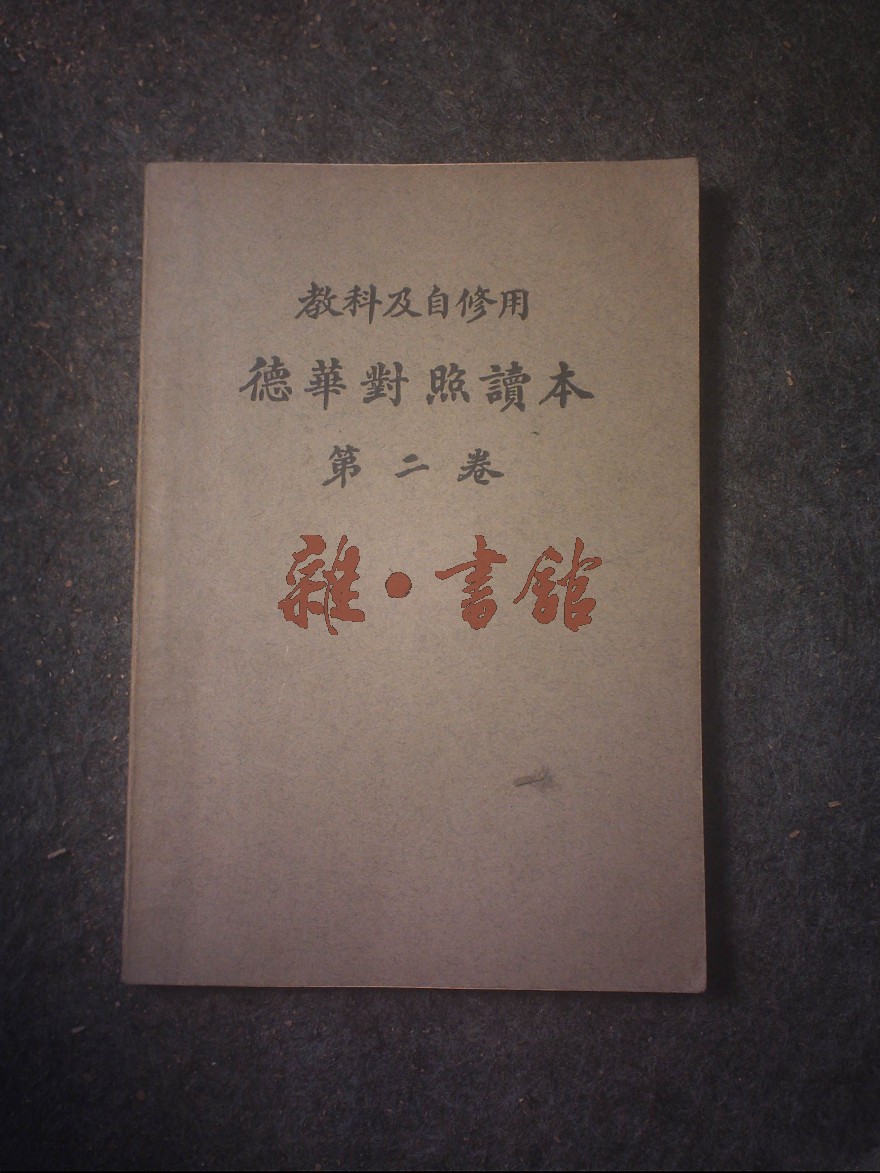 教科及自修用
德華對照讀本
第二卷
雜·書館